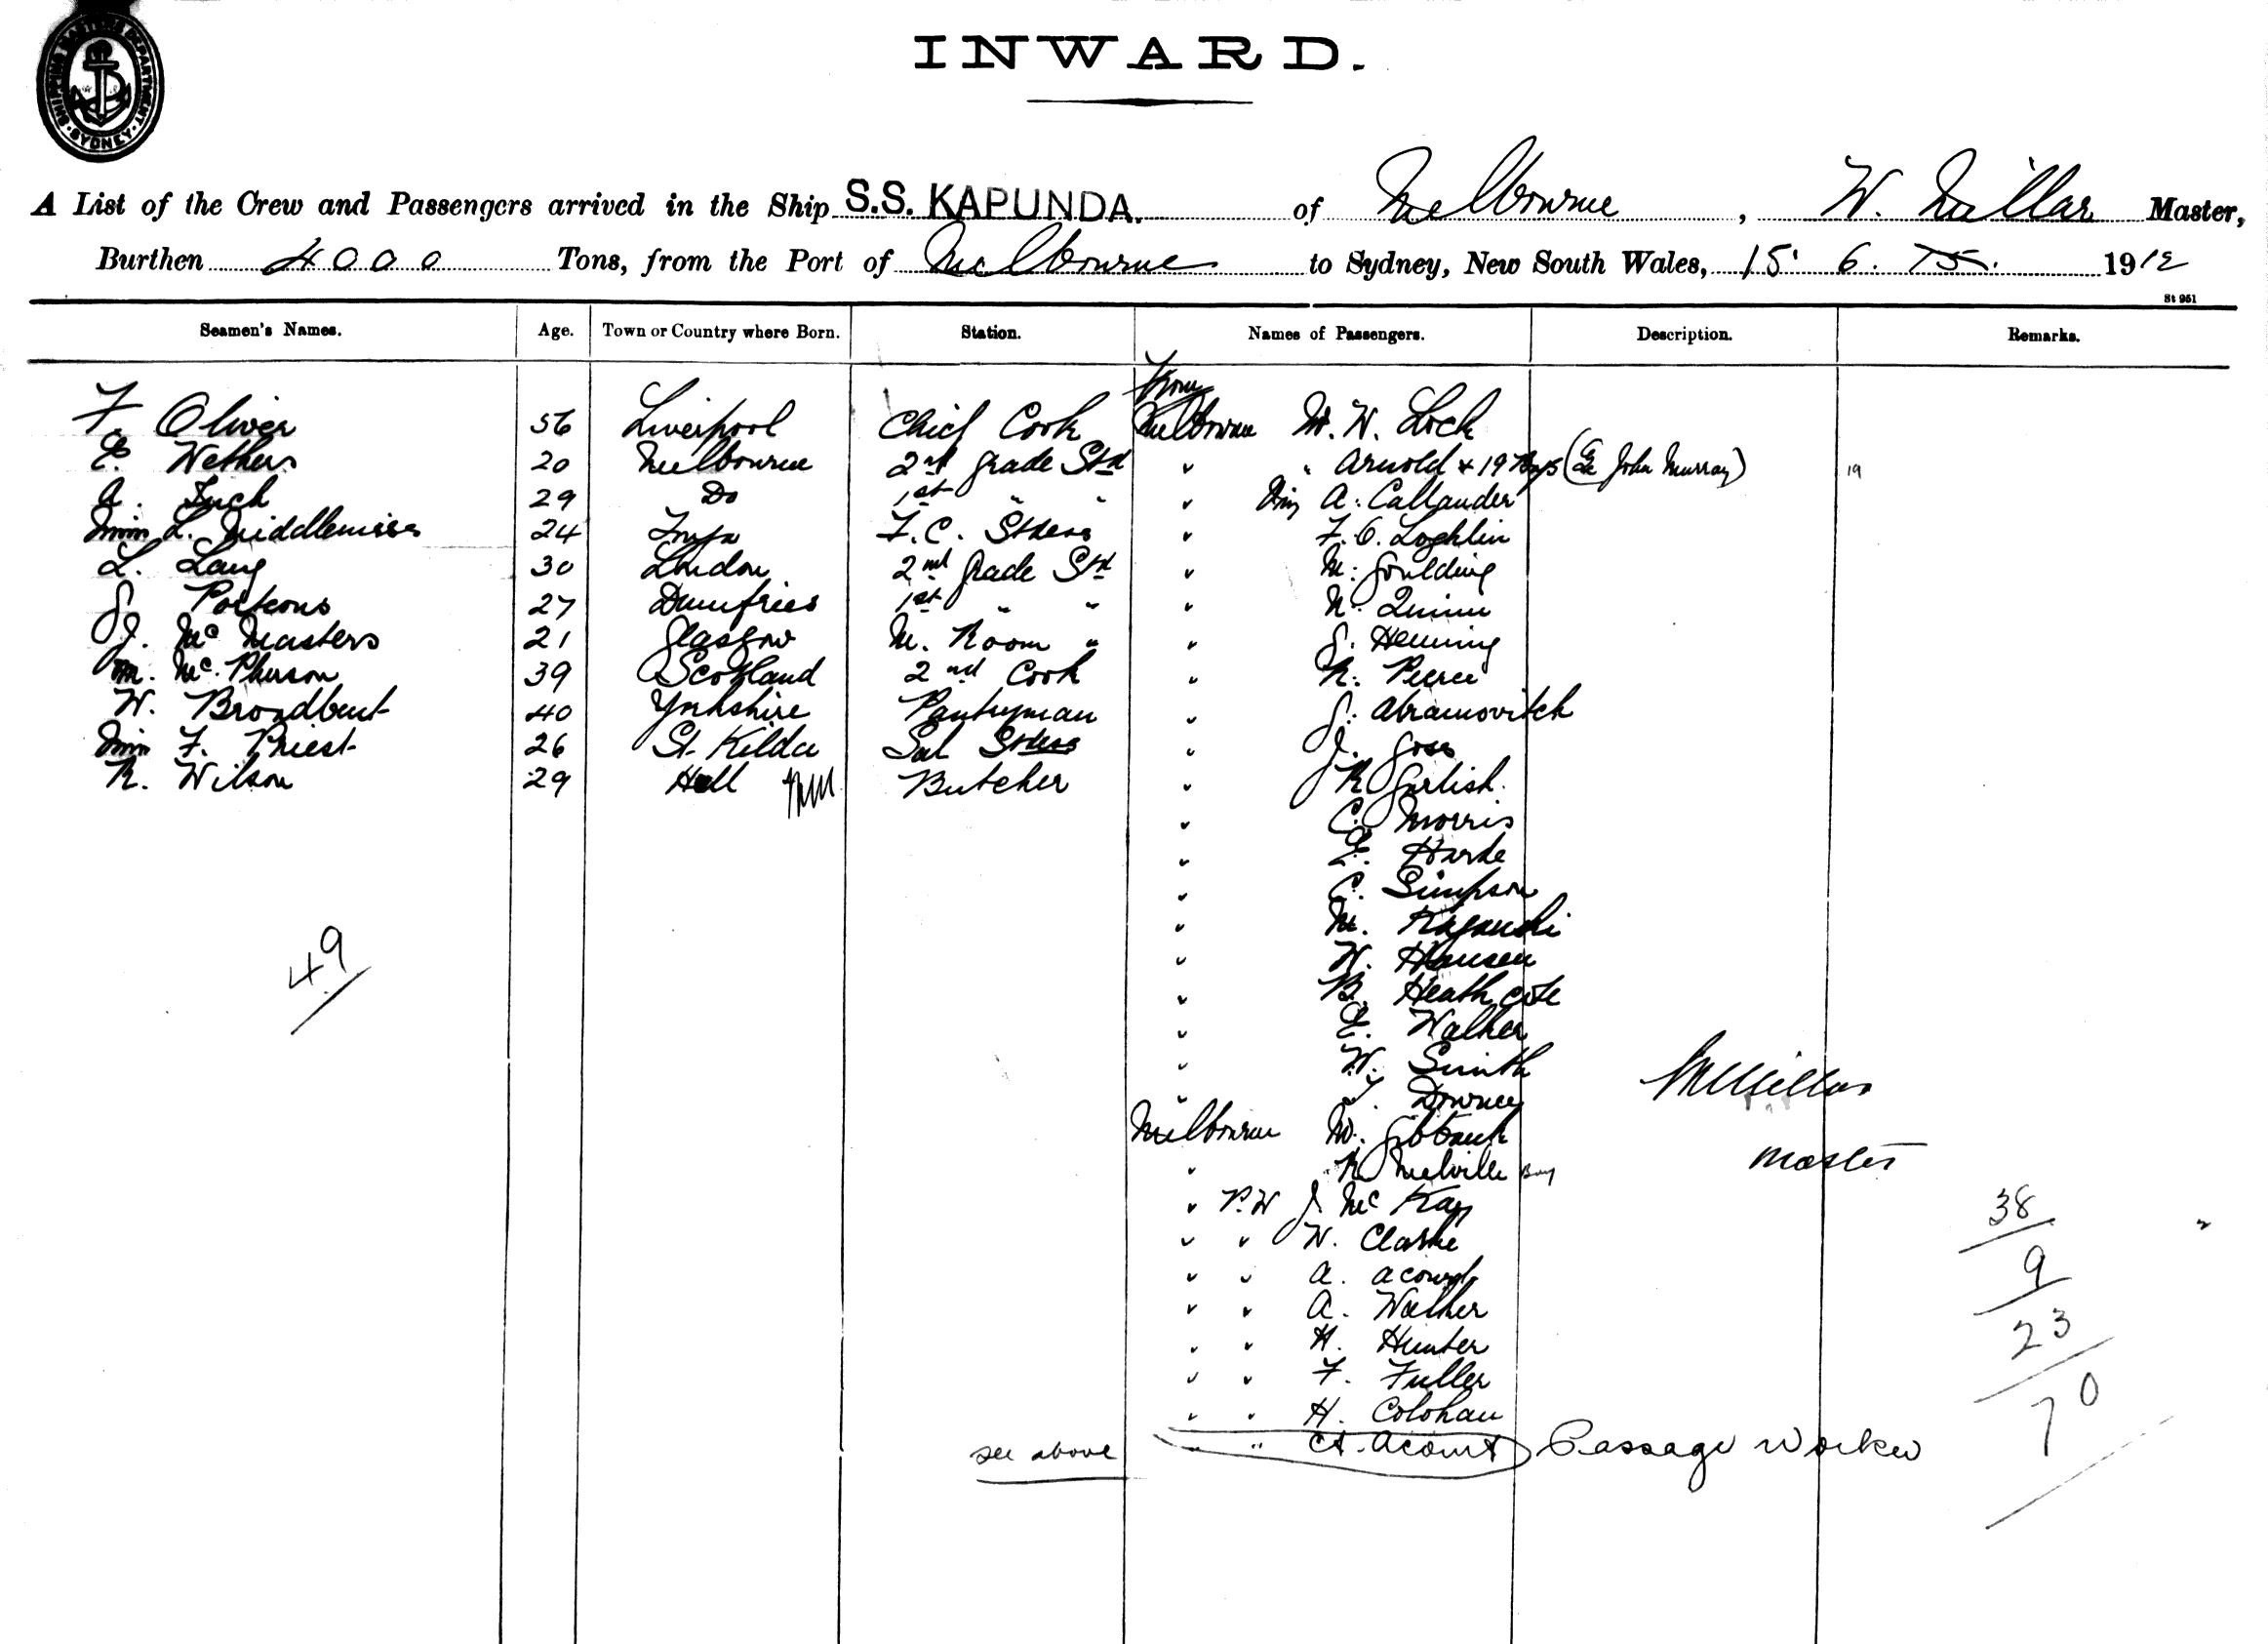 SHIPPING MASTER'S DEPARTMENT · SYDNEY ·
INWARD.
A List of the Crew and Passengers arrived in the Ship S.S. KAPUNDA. of Melbourne, W. Millar Master,
Burthen 4000 Tons, from the Port of Melbourne to Sydney, New South Wales, 15. 6. 1912
St 951
Seamen's Names. Age. Town or Country where Born. Station. Names of Passengers. Description. Remarks.
From
F. Oliver 56 Liverpool Chief Cook Melbourne Mr. W. Lock
E. Withers 20 Melbourne 2nd Grade Std " " Arnold + 19 Boys (Ex John Murray) 19
A. Tuck 29 Do 1st " " " A. Callander
Miss L. Middlemiss 24 F.C. Stdess " F. O. Loghlin
L. Lang 30 London 2nd Grade Std " M. Goulding
J. Porteous 27 Dumfries 1st " " " N. Quinn
J. McMasters 21 Glasgow M. Room " " J. Heming
M. McPherson 39 Scotland 2nd Cook " R. Pierce
W. Broadbent 40 Yorkshire Pantryman " J. Abramovitch
Miss F. Priest 26 St. Kilda Sal Stdess " J. Goss
R. Wilson 29 Hull Butcher " R. Garlish.
" C. Morris
" E. Harde
" C. Simpson
" M.
" W. Hansen
49 " B. Heathcote
" E. Walker
" W. Smith
" T. Downey
W Millar
Melbourne W.
Master
" R. Melville Boy
" P.W J. McKay
38 "
" " W. Clarke
9
" " A. Acourt
" " A. Walker
23
" " H. Hunter
" " F. Fuller
70
" " H. Colohan
see above " " A. Acourt Passage Worker